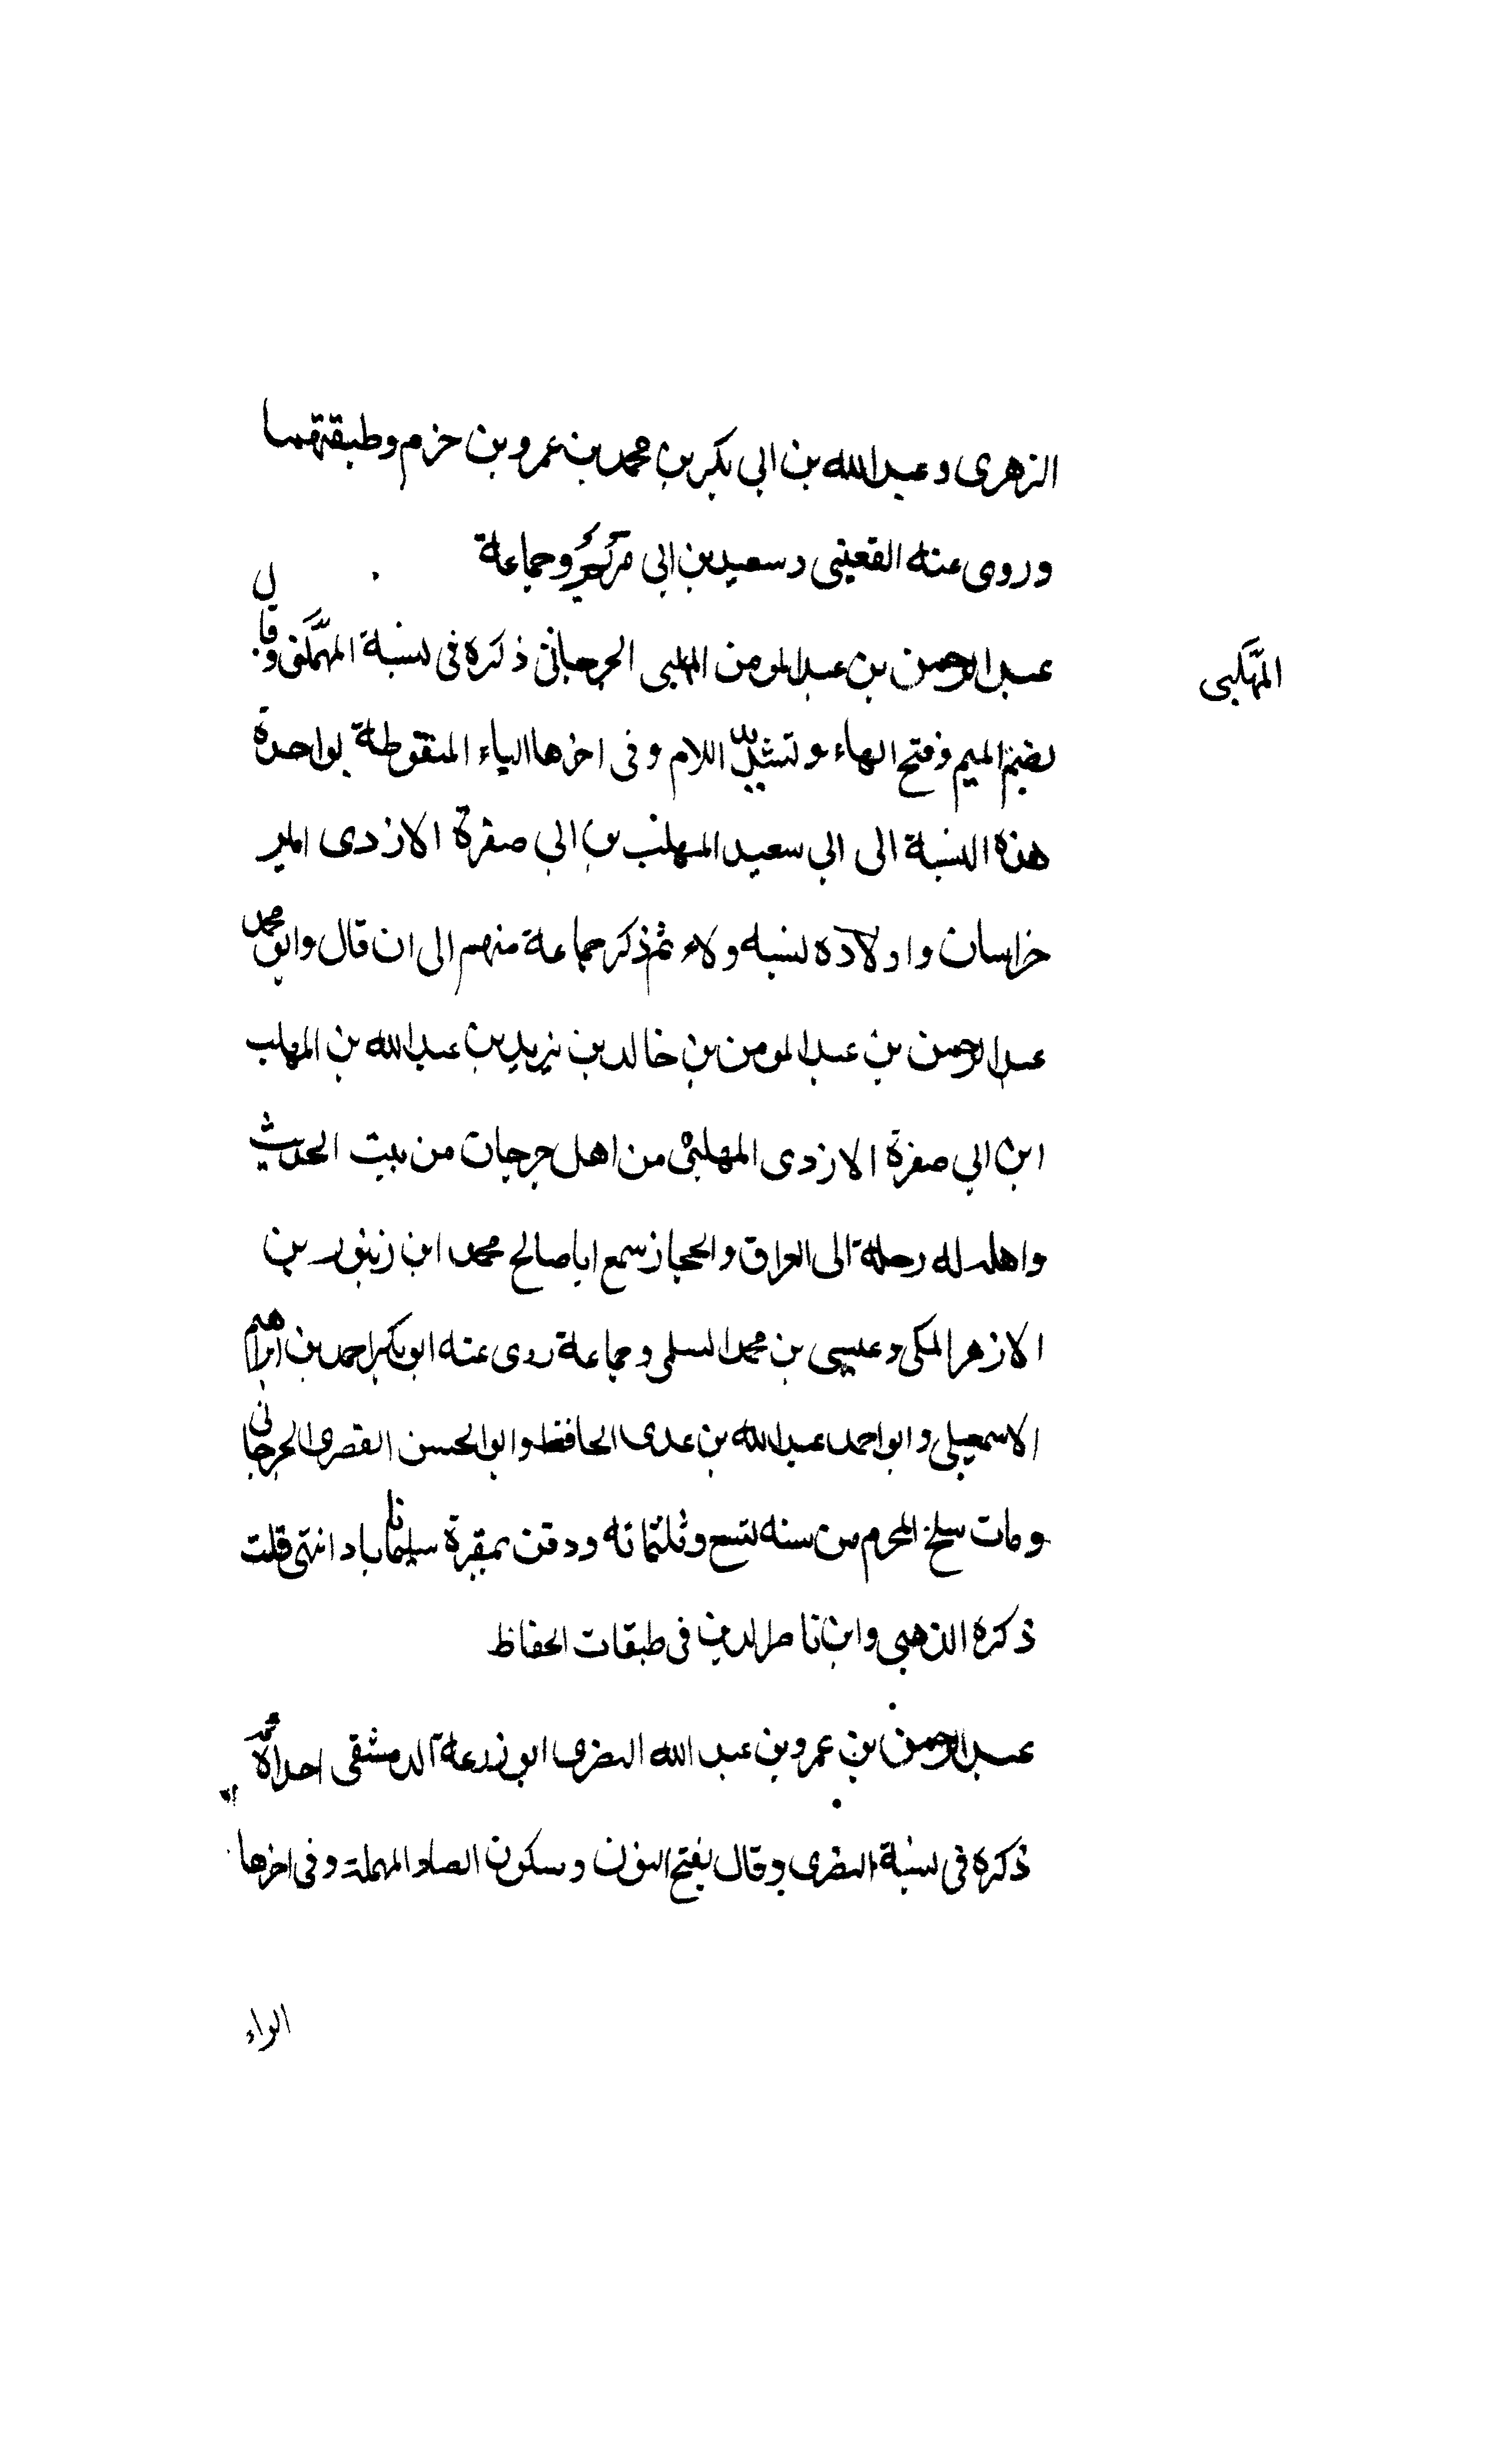 الزهرى وعبدالله بن ابى بكر بن محمد بن عمرو بن حزم وطبقتهما
وروى عنه القعنبى وسعيد بن ابى مريم وجماعة
المهلبى
عبدالرحمن بن عبدالمومن المهلبى الجرجانى ذكره فى نسبة المهلبى وقال
بضم الميم وفتح الهاء وتشديد اللام وفى اخرها الباء المنقوطة بواحدة
هذه النسبة الى ابى سعيد المهلب بن ابى صفرة الازدى امير
خراسان واولاده نسبه ولاء ثم ذكر جماعة منهم الى ان قال وابو محمد
عبدالرحمن بن عبدالمومن بن خالد بن يزيد بن عبدالله بن المهلب
ابن ابى صفرة الازدى المهلبى من اهل جرجان من بيت الحديث
واهله له رحلة الى العراق والحجاز سمع اباصالح محمد ابن زنبور بن
الازهر المكى وعيسى بن محمد السلمى وجماعة روى عنه ابو بكر احمد بن ابراهيم
الاسمعيلى وابو احمد عبدالله بن عدى الحافظ وابو الحسن القصرى الجرجانى
ومات سلخ المحرم من سنه تسع وثلثمائه ودفن بمقبرة سليماناباد انتهى قلت
ذكره الذهبى وابن ناصرالدين فى طبقات الحفاظ
عبدالرحمن بن عمرو بن عبد الله النصرى ابو زرعة الدمشقى احد الائمة
ذكره فى نسبة النصرى وقال بفتح النون وسكون الصاد المهملة وفى اخرها
الراء